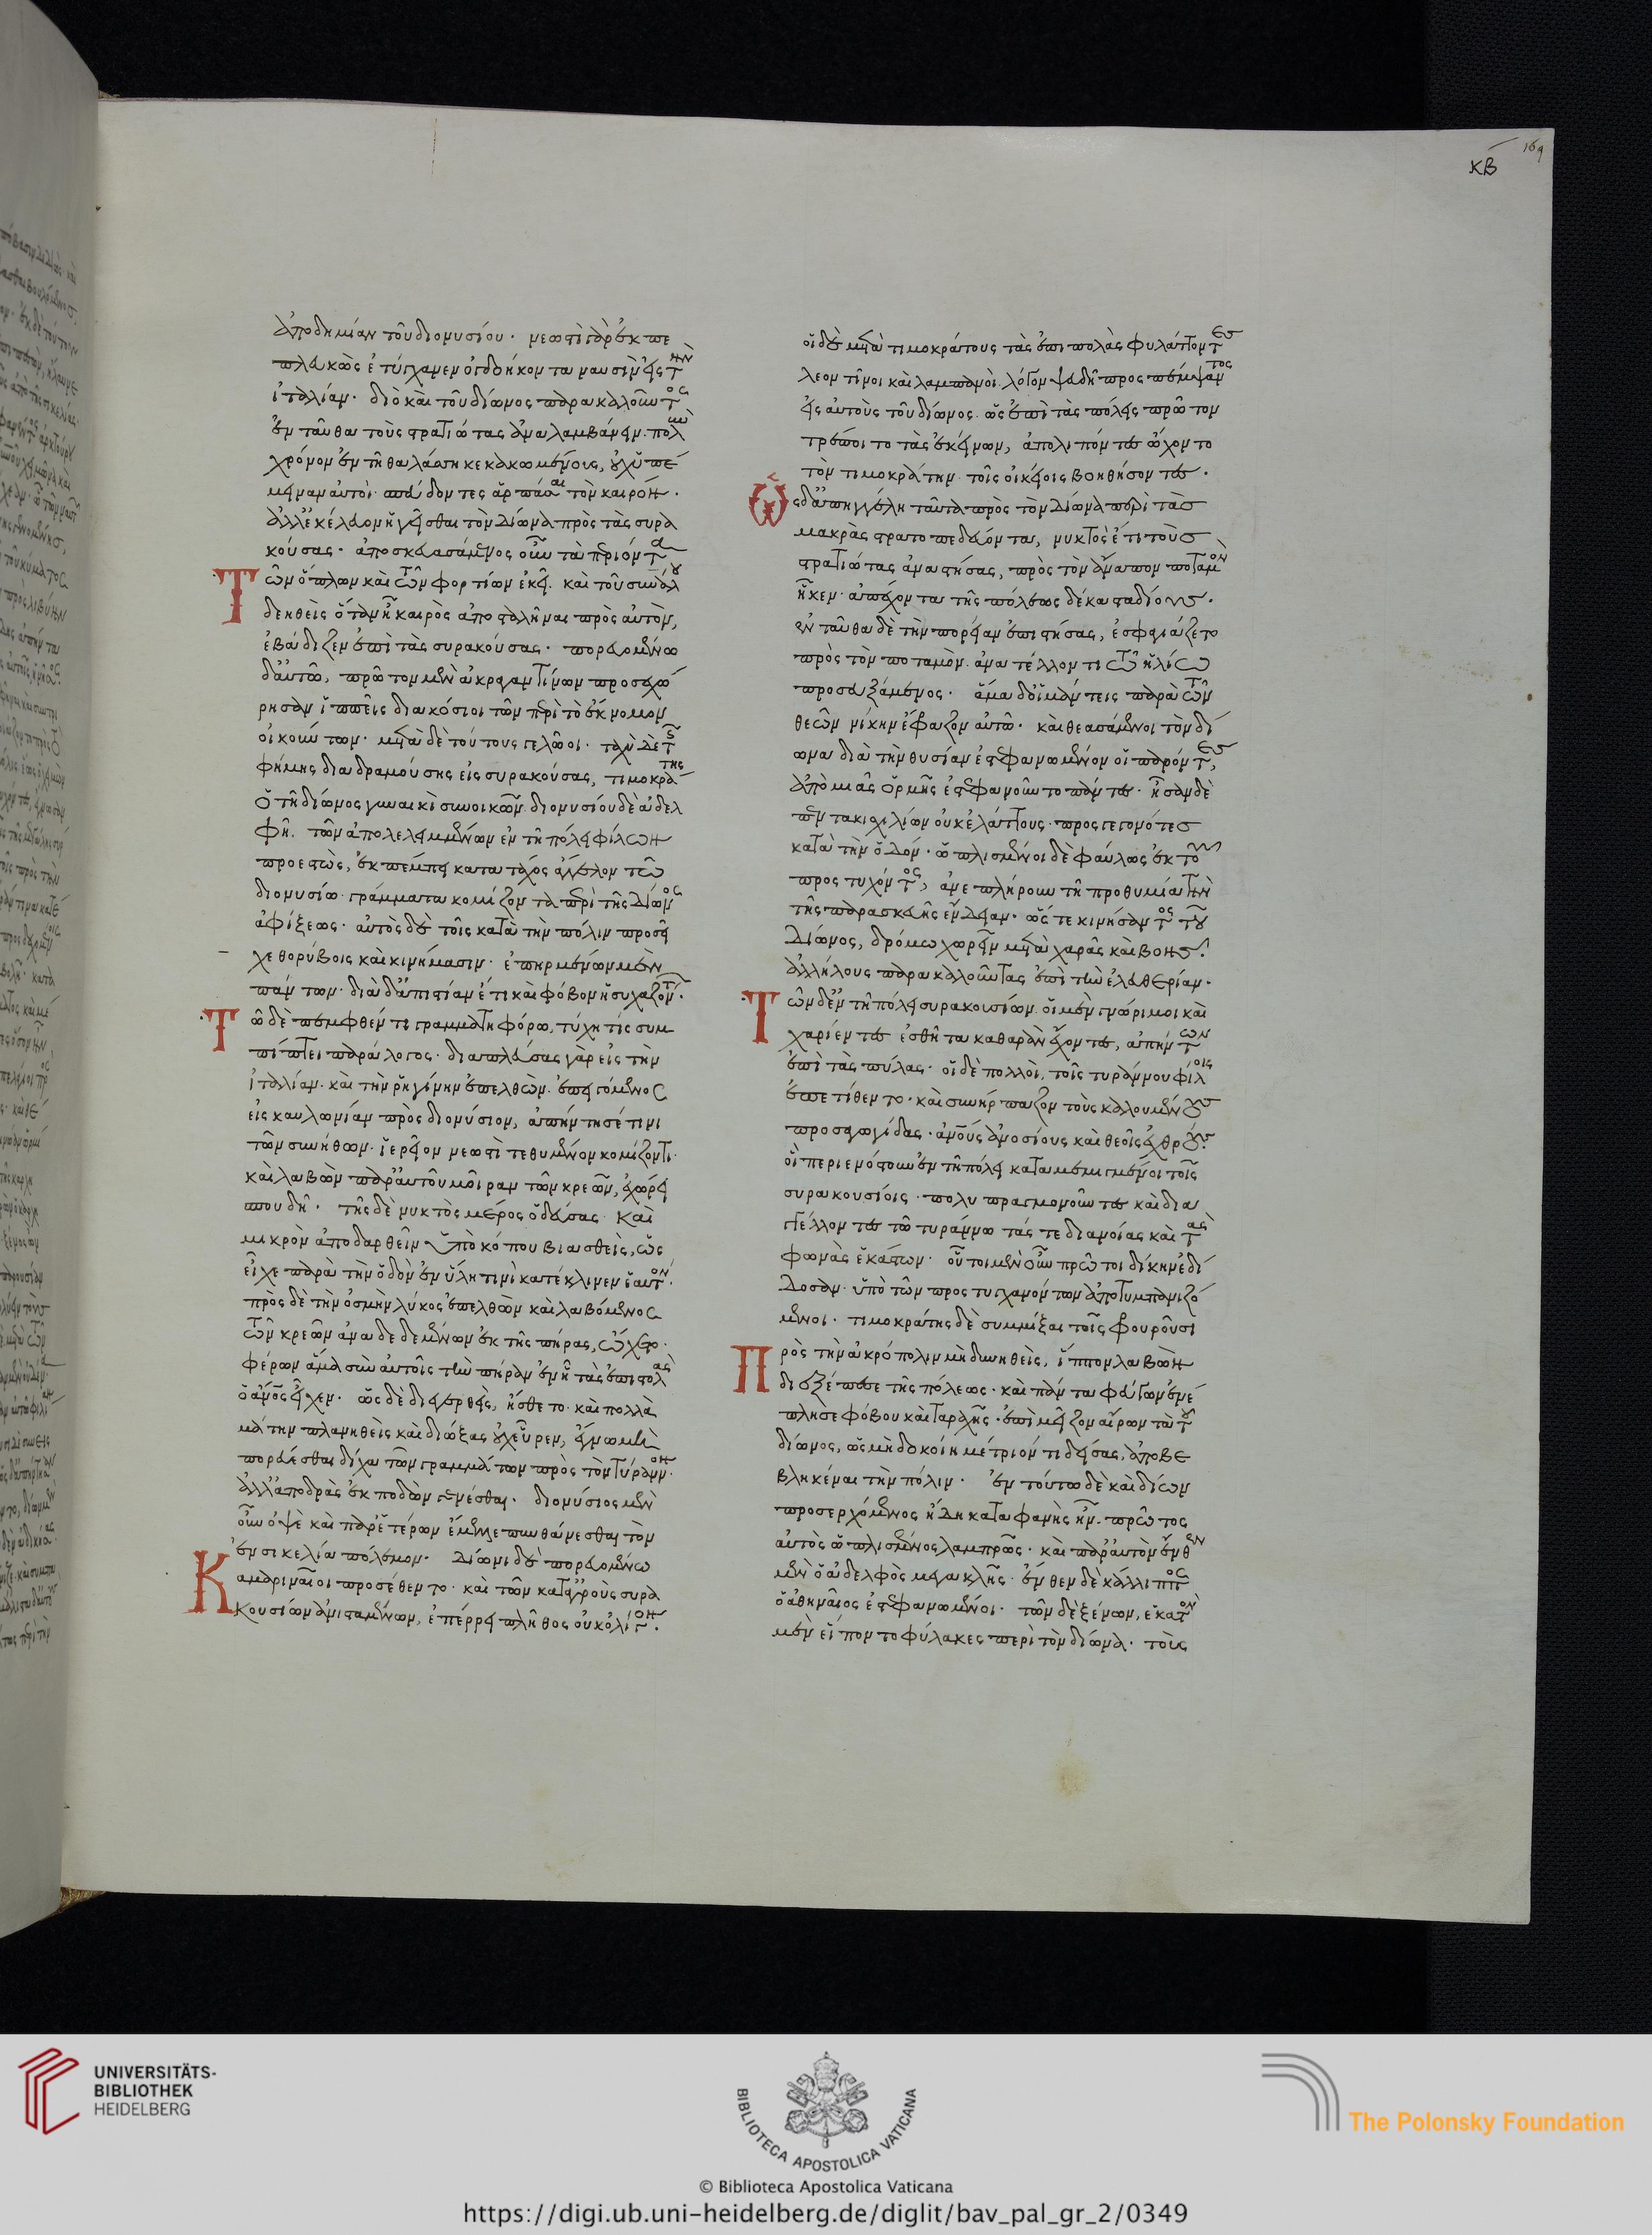 κβ
169
ἀποδημίαν τοῦ διονυσίου· νεωστὶ γὰρ ἐκπε
πλευκὼς ἐτύγχανεν ὀγδοήκοντα ναυσὶν εἰς τὴν
ἰταλίαν· διὸ καὶ τοῦ δίωνος παρακαλοῦντος
ἐνταῦθα τοὺς στρατιώτας ἀναλαμβάνειν πολὺν
χρόνον ἐν τῆ θαλάσση κεκακωμένους, οὐχ ὑπέ
μειναν αὐτοὶ σπεύδοντες ἁρπάσαι τὸν καιρόν·
ἀλλ᾽ ἐκέλευον ἡγεῖσθαι τὸν Δίωνα πρὸς τὰς συρα
κούσας· ἀποσκευασάμενος οὖν τὰ περιόντα
Τῶν ὅπλων καὶ τῶν φορτίων ἐκεῖ· καὶ τοῦ συνάλου
δεηθεὶς ὅταν ἦ καιρὸς ἀποστεῖλαι πρὸς αὐτὸν,
ἐβάδιζεν ἐπὶ τὰς συρακούσας· πορευομένω
δ᾽ αὐτῶ, πρῶτον μὲν ἀκραγαντίνων προσεχώ
ρησαν ἱππεῖς διακόσιοι τῶν περὶ τὸ ἔκνομον
οἰκούντων· μετὰ δὲ τούτους γελῶοι· ταχὺ δὲ τῆς
φήμης διαδραμούσης εἰς συρακούσας, τιμοκράτης
ὁ τῆ δίωνος γυναικὶ συνοικῶν διονυσίου δὲ ἀδελ
φῆ· τῶν ἀπολελειμμένων ἐν τῆ πόλει φίλων
προεστὼς, ἐκπέμπει κατὰ τάχος ἄγγελον τῶ
διονυσίω γράμματα κομίζοντα περὶ τῆς Δίωνος
ἀφίξεως· αὐτὸς δὲ τοῖς κατὰ τὴν πόλιν προσεῖ
χε θορύβοις καὶ κινήμασιν· ἐπηρμένων μὲν
πάντων· διὰ δ᾽ ἀπιστίαν ἔτι καὶ φόβον ἡσυχαζόντων·
Τῶ δὲ πεμφθέντι γραμματηφόρω, τύχη τίς συμ
πίπτει παράλογος· διαπλεύσας γὰρ εἰς τὴν
ἰταλίαν· καὶ τὴν ῥηγίνην ἐπελθὼν· ἐπειγόμενος
εἰς καυλωνίαν πρὸς διονύσιον, ἀπήντησέ τινι
τῶν συνήθων· ἱερεῖον νεωστὶ τεθυμένον κομίζοντι·
καὶ λαβὼν παρ᾽ αὐτοῦ μοῖραν τῶν κρεῶν, ἐχώρει
σπουδῆ· τῆς δὲ νυκτὸς μέρος ὁδεύσας καὶ
μικρὸν ἀποδαρθεῖν ὑπὸ κόπου βιασθεὶς, ὡς
εἶχε παρὰ τὴν ὁδὸν ἐν ὕλη τινὶ κατέκλινεν ἑαυτὸν·
πρὸς δὲ τὴν ὀσμὴν λύκος ἐπελθὼν καὶ λαβόμενος
τῶν κρεῶν ἀναδεδεμένων ἐκ τῆς πήρας, ὤχετο
φέρων ἅμα σὺν αὐτοῖς τὴν πήραν ἐν ἧ τὰς ἐπιστολὰς
ὁ ἄνθρωπος εἶχεν· ὡς δὲ διεγερθεὶς, ἤσθετο· καὶ πολλὰ
μάτην πλανηθεὶς καὶ διώξας οὐχ εὗρεν, ἔγνω μὴ
πορεύεσθαι δίχα τῶν γραμμάτων πρὸς τὸν τύραννον·
ἀλλ᾽ ἀποδρὰς ἐκποδὼν γενέσθαι· διονύσιος μὲν
οὖν ὀψὲ καὶ παρ᾽ ἑτέρων ἔμελλε πυνθάνεσθαι τὸν
ἐν σικελία πόλεμον· Δίωνι δὲ πορευομένω
Καμαριναῖοι προσέθεντο· καὶ τῶν κατ᾽ ἀγροὺς συρα
κουσίων ἀνισταμένων, ἐπέρρει πλῆθος οὐκ ὀλίγον·
οἱ δὲ μετὰ τιμοκράτους τὰς ἐπιπολὰς φυλάττοντες
λεοντῖνοι καὶ λαμπανοὶ. λόγον ψευδῆ προσπέμψαντος
εἰς αὐτοὺς τοῦ δίωνος· ὡς ἐπὶ τὰς πόλεις πρῶτον
τρέποιτο τὰς ἐκείνων, ἀπολιπόντες ὤχοντο
τὸν τιμοκράτην τοῖς οἰκείοις βοηθήσοντες·
Ὡς δ᾽ ἀπηγγέλη ταῦτα πρὸς τὸν Δίωνα περὶ τὰς
μακρὰς στρατοπεδεύοντα, νυκτὸς ἔτι τοὺς
στρατιώτας ἀναστήσας, πρὸς τὸν ἄναπον ποταμὸν
ἧκεν· ἀπέχοντα τῆς πόλεως δέκα σταδίους·
ἐνταῦθα δὲ τὴν πορείαν ἐπιστήσας, ἐσφαγιάζετο
πρὸς τὸν ποταμὸν· ἀνατέλλοντι τῶ ἡλίω
προσευξάμενος· ἅμα δ᾽ οἱ μάντεις παρὰ τῶν
θεῶν νίκην ἔφαζον αὐτῶ· καὶ θεασάμενοι τὸν δί
ωνα διὰ τὴν θυσίαν ἐστεφανωμένον οἱ παρόντες,
ἀπὸ μιᾶς ὁρμῆς ἐστεφανοῦντο πάντες· ἦσαν δὲ
πεντακισχιλίων οὐκ ἐλάττους προσγεγονότες
κατὰ τὴν ὁδόν· ὡπλισμένοι δὲ φαύλως ἐκ τοῦ
προστυχόντος, ἀνεπλήρουν τῆ προθυμία τὴν
τῆς παρασκευῆς ἔνδειαν· ὥστε κινήσαντος τοῦ
Δίωνος, δρόμω χωρεῖν μετὰ χαρᾶς καὶ βοῆς·
ἀλλήλους παρακαλοῦντας ἐπὶ τὴν ἐλευθερίαν·
Τῶν δ᾽ ἐν τῆ πόλει συρακουσίων οἱ μὲν γνώριμοι καὶ
χαρίεντες ἐσθῆτα καθαρὰν ἔχοντες, ἀπήντων
ἐπὶ τὰς πύλας· οἱ δὲ πολλοὶ, τοῖς τυράννου φίλοις
ἐπετίθεντο· καὶ συνήρπαζον τοὺς καλουμένους
προσαγωγίδας· ἀνθρώπους ἀνοσίους καὶ θεοῖς ἐχθροὺς·
οἳ περιενόστουν ἐν τῆ πόλει καταμεμιγμένοι τοῖς
συρακουσίοις· πολυπραγμονοῦντες καὶ δια
γγέλλοντες τῶ τυράννω τάς τε διανοίας καὶ τὰς
φωνὰς ἑκάστων· οὗτοι μὲν οὖν πρῶτοι δίκην ἐδί
δοσαν· ὑπὸ τῶν προστυγχανόντων ἀποτυμπανιζό
μενοι· τιμοκράτης δὲ συμμίξαι τοῖς φρουροῦσι
Πρὸς τὴν ἀκρόπολιν μὴ δυνηθεὶς, ἵππον λαβὼν
διεξέπεσε τῆς πόλεως· καὶ πάντα φεύγων ἐνέ
πλησε φόβου καὶ ταραχῆς· ἐπὶ μεῖζον αἴρων τὰ τοῦ
δίωνος, ὡς μὴ δοκοίη μέτριόν τι δείσας, ἀποβε
βληκέναι τὴν πόλιν· ἐν τούτω δὲ καὶ δίων
προσερχόμενος ἤδη καταφανὴς ἦν· πρῶτος
αὐτὸς ὡπλισμένος λαμπρῶς· καὶ παρ᾽ αὐτὸν ἔνθεν
μὲν ὁ ἀδελφὸς μεγακλῆς· ἔνθεν δὲ κάλλιππος
ὁ ἀθηναῖος ἐστεφανωμένοι· τῶν δὲ ξένων, ἑκατὸν
μὲν εἵποντο φύλακες περὶ τὸν δίωνα· τοὺς
UNIVERSITÄTS-
BIBLIOTHEK
HEIDELBERG
BIBLIOTECA APOSTOLICA VATICANA
© Biblioteca Apostolica Vaticana
The Polonsky Foundation
https://digi.ub.uni-heidelberg.de/diglit/bav_pal_gr_2/0349